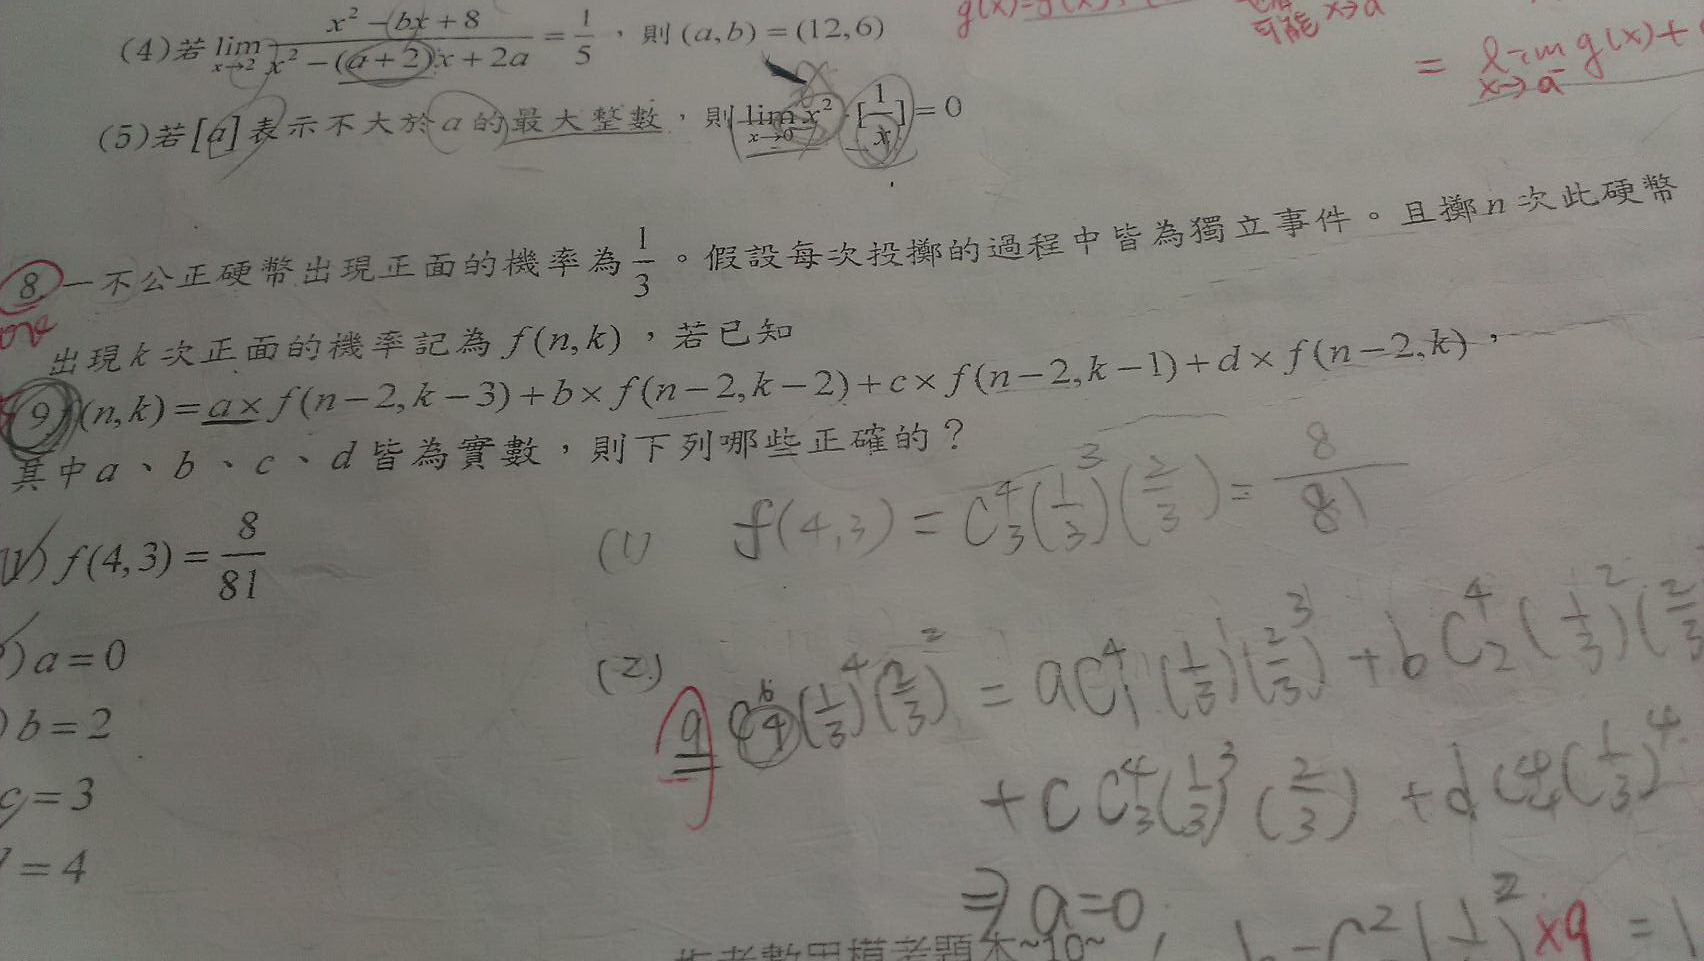 (4)若 lim x→2 (x² − bx + 8)/(x² − (a+2)x + 2a) = 1/5 ，則 (a,b) = (12,6)
(5)若[a]表示不大於a的最大整數，則 lim x→0 x²·[1/x] = 0
= lim x→a⁻ g(x)+
8. 一不公正硬幣出現正面的機率為 1/3 。假設每次投擲的過程中皆為獨立事件。且擲n次此硬幣
出現k次正面的機率記為 f(n,k)，若已知
f(n,k) = a× f(n−2,k−3) + b× f(n−2,k−2) + c× f(n−2,k−1) + d× f(n−2,k)，
9
其中a、b、c、d皆為實數，則下列哪些正確的？
f(4,3) = 8/81
a = 0
b = 2
c = 3
= 4
(1) f(4,3) = C⁴₃(1/3)³(2/3) = 8/81
(2) 9 C⁶₄(1/3)⁴(2/3)² = aC⁴₁(1/3)(2/3)³ + bC⁴₂(1/3)²(2/3)
+ cC⁴₃(1/3)³(2/3) + dC⁴₄(1/3)⁴
⇒ a=0
×9 =
~10~